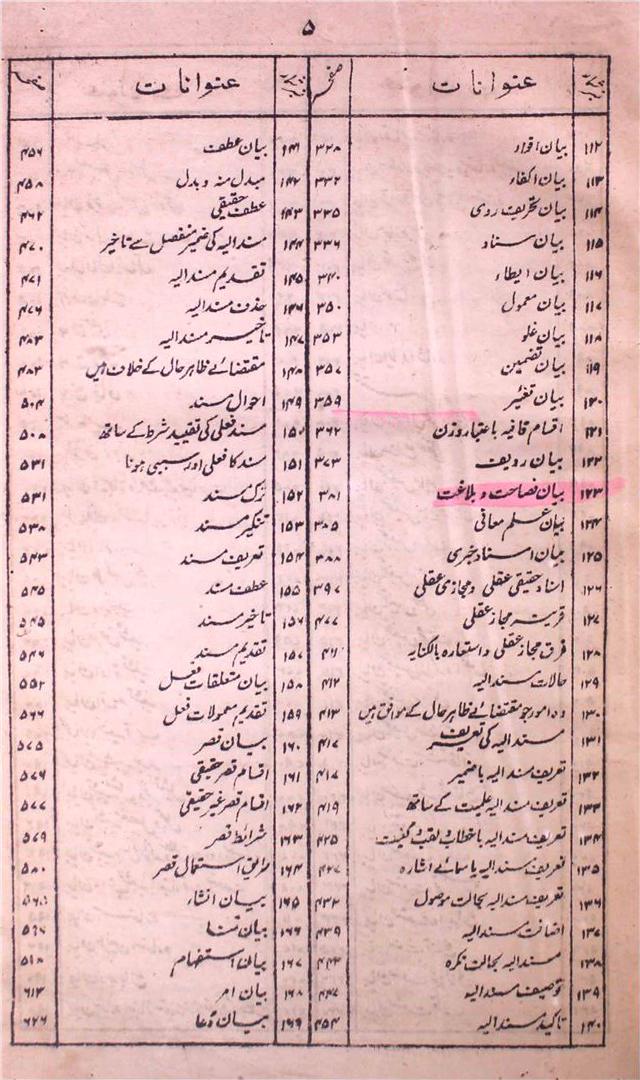 ۵
نمبر شمار عنوانات صفحہ
۱۱۲ بیان اقواء ۳۲۸
۱۱۳ بیان اکفاء ۳۳۲
۱۱۴ بیان تحریف روی ۳۳۵
۱۱۵ بیان سناد ۳۳۶
۱۱۶ بیان ایطاء ۳۴۰
۱۱۷ بیان معمول ۳۵۰
۱۱۸ بیان غلو ۳۵۳
۱۱۹ بیان تضمین ۳۵۷
۱۲۰ بیان تغیئر ۳۵۹
۱۲۱ اقسام قافیہ باعتبار وزن ۳۶۲
۱۲۲ بیان ردیف ۳۷۳
۱۲۳ بیان فصاحت و بلاغت ۳۸۱
۱۲۴ بیان علم معانی ۳۸۵
۱۲۵ بیان اسناد خبری ۳۸۸
۱۲۶ اسناد حقیقی عقلی و مجازی عقلی ۳۹۷
۱۲۷ قرینہ مجاز عقلی ۴۷۷
۱۲۸ فرق مجاز عقلی و استعارہ بالکنایہ ۴۱۱
۱۲۹ حالات مسندالیہ ۴۱۲
۱۳۰ وہ امور جو مقتضائے ظاہر حال کے موافق ہیں ۴۱۳
۱۳۱ مسندالیہ کی تعریف ۴۱۷
۱۳۲ تعریف مسندالیہ باضمیر ۴۱۷
۱۳۳ تعریف مسندالیہ علمیت کے ساتھ ۴۱۹
۱۳۴ تعریف مسندالیہ باخطاب و لقب و کنیت ۴۲۵
۱۳۵ تعریف مسندالیہ باسمائے اشارہ ۴۲۷
۱۳۶ تعریف مسندالیہ بحالت موصول ۴۳۲
۱۳۷ اضافت مسندالیہ ۴۳۹
۱۳۸ مسندالیہ بحالت نکرہ ۴۴۳
۱۳۹ توصیف مسندالیہ ۴۴۷
۱۴۰ تاکید مسندالیہ ۴۵۴
نمبر شمار عنوانات صفحہ
۱۴۱ بیان عطف ۴۵۶
۱۴۲ مبدل منہ و بدل ۴۵۸
۱۴۳ عطف حقیقی ۴۶۲
۱۴۴ مسندالیہ کی ضمیر منفصل سے تاخیر ۴۷۰
۱۴۵ تقدیم مسندالیہ ۴۷۱
۱۴۶ حذف مسندالیہ ۴۷۶
۱۴۷ تاخیر مسندالیہ ۴۸۳
۱۴۸ مقتضائے ظاہر حال کے خلاف ہیں ۴۸۳
۱۴۹ احوال مسند ۵۰۴
۱۵۰ مسند فعلی کی تقیید شرط کے ساتھ ۵۰۸
۱۵۱ مسند کا فعلی اور سببی ہونا ۵۳۱
۱۵۲ ترک مسند ۵۳۱
۱۵۳ تنکیر مسند ۵۳۸
۱۵۴ تعریف مسند ۵۴۳
۱۵۵ عطف مسند ۵۴۵
۱۵۶ تاخیر مسند ۵۴۵
۱۵۷ تقدیم مسند ۵۴۶
۱۵۸ بیان متعلقات فعل ۵۵۲
۱۵۹ تقدیم معمولات فعل ۵۶۶
۱۶۰ بیان قصر ۵۷۵
۱۶۱ اقسام قصر حقیقی ۵۷۶
۱۶۲ اقسام قصر غیر حقیقی ۵۷۷
۱۶۳ شرائط قصر ۵۷۹
۱۶۴ طریق استعمال قصر ۵۸۰
۱۶۵ بیان انشاء
۱۶۶ بیان تمنا
۱۶۷ بیان استفہام ۵۹۸
۱۶۸ بیان امر ۶۱۳
۱۶۹ بیان دعا ۶۲۶